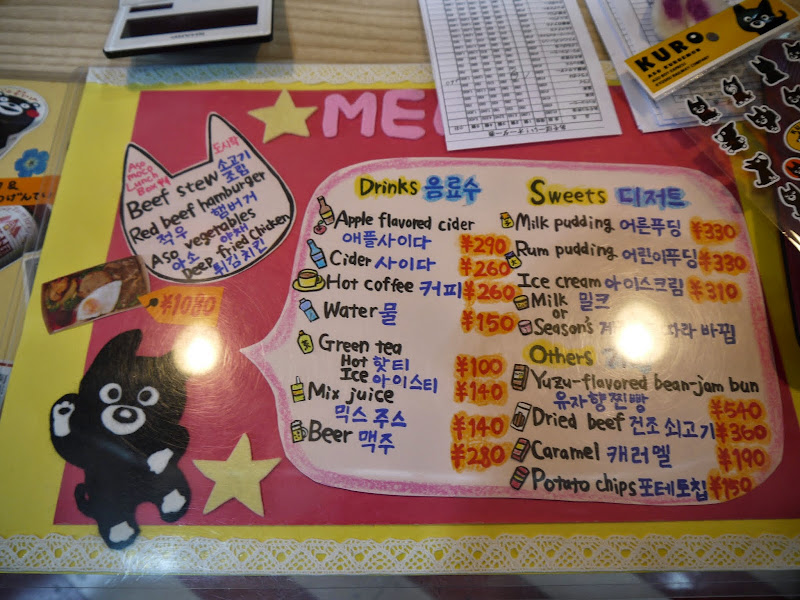 KURO
ME
Aso
moco
Lunch
Box
도시락
Beef stew 소고기
조림
Red beef hamburger
적우 햄버거
Aso vegetables
아소 야채
Deep-fried chicken
튀김치킨
¥1080
Drinks 음료수
Apple flavored cider
애플사이다 ¥290
Cider 사이다 ¥260
Hot coffee 커피 ¥260
Water 물 ¥150
Green tea
Hot 핫티 ¥100
Ice 아이스티 ¥140
Mix juice
믹스 주스 ¥140
Beer 맥주 ¥280
Sweets 디저트
Milk pudding 어른푸딩 ¥330
Rum pudding 어린이푸딩 ¥330
Ice cream 아이스크림 ¥310
Milk 밀크
or
Season's 따라 바뀜
Others
Yuzu-flavored bean-jam bun
유자향찐빵 ¥540
Dried beef 건조 쇠고기 ¥360
Caramel 캐러멜 ¥190
Potato chips 포테토칩 ¥150